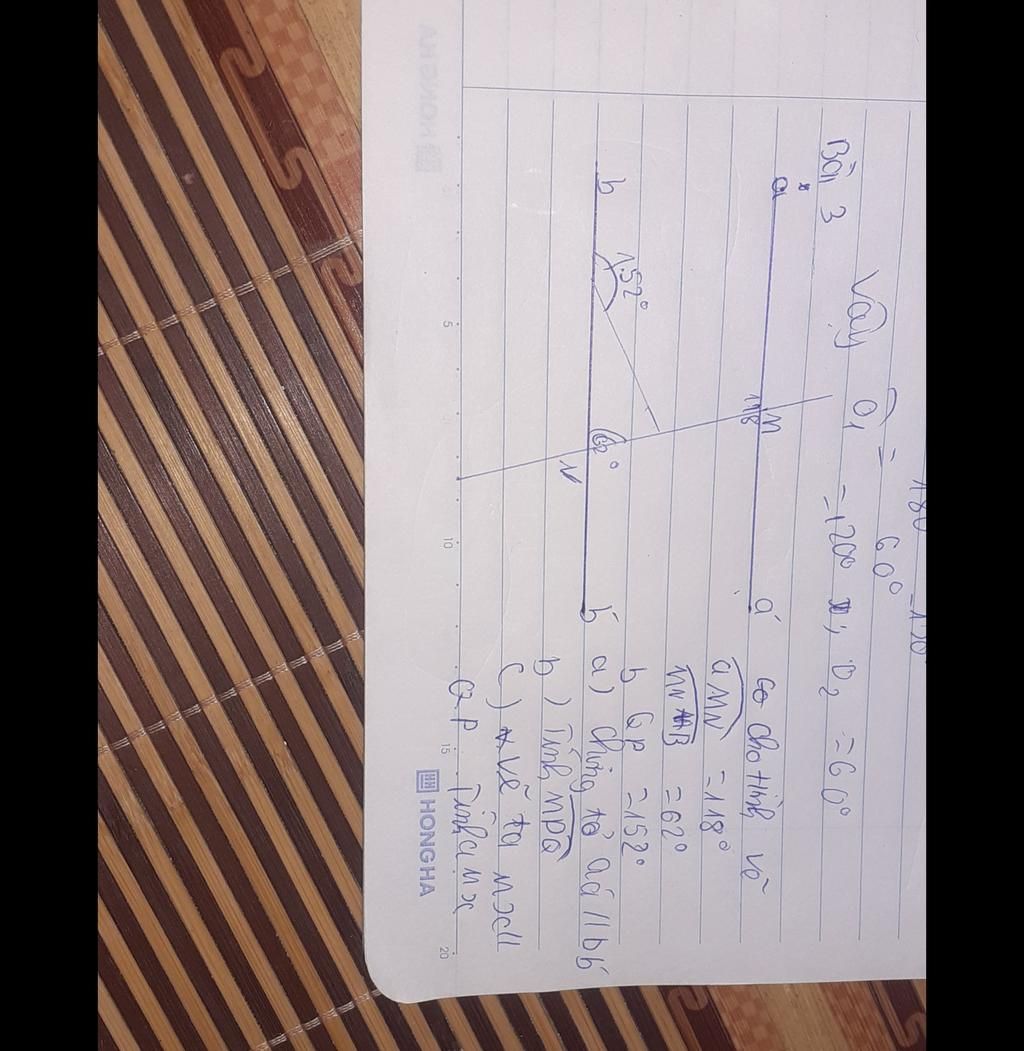 180 - 120
60°
Vậy O₁ = = 120°, O₂ = 60°
Bài 3
a
M
118
a'
b
152°
62°
N
b'
cho hình vẽ
aMN = 118°
= 62°
b QP = 152°
a) Chứng tỏ aa' // bb'
b) Tính MPQ
c) Vẽ ta Mx //
QP Tính aMx
5
10
15
20
HONGHA